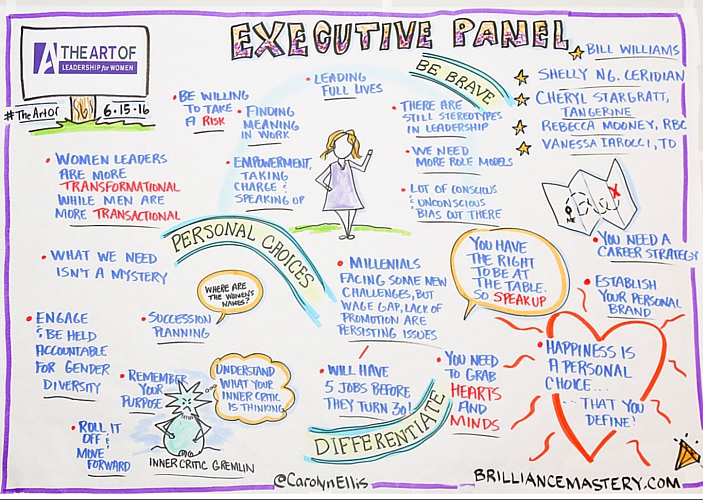 EXECUTIVE PANEL
A THE ART OF
LEADERSHIP for WOMEN
#TheArtOf
6·15·16
BE BRAVE
BILL WILLIAMS
SHELLY NG. CERIDIAN
CHERYL STARGRATT,
TANGERINE
REBECCA MOONEY, RBC
VANESSA IAROCCI, TD
• BE WILLING
TO TAKE
A RISK
• LEADING
FULL LIVES
• FINDING
MEANING
IN WORK
• EMPOWERMENT,
TAKING
CHARGE &
SPEAKING UP
• THERE ARE
STILL STEREOTYPES
IN LEADERSHIP
• WE NEED
MORE ROLE MODELS
• LOT OF CONSCIOUS
& UNCONSCIOUS
BIAS OUT THERE
• WOMEN LEADERS
ARE MORE
TRANSFORMATIONAL
WHILE MEN ARE
MORE TRANSACTIONAL
PERSONAL CHOICES
• WHAT WE NEED
ISN'T A MYSTERY
WHERE ARE
THE WOMEN'S
NAMES?
• SUCCESSION
PLANNING
• ENGAGE
& BE HELD
ACCOUNTABLE
FOR GENDER
DIVERSITY
• REMEMBER
YOUR
PURPOSE
UNDERSTAND
WHAT YOUR
INNER CRITIC
IS THINKING
• ROLL IT
OFF &
MOVE
FORWARD
INNER CRITIC GREMLIN
• MILLENIALS
FACING SOME NEW
CHALLENGES, BUT
WAGE GAP, LACK OF
PROMOTION ARE
PERSISTING ISSUES
• WILL HAVE
5 JOBS BEFORE
THEY TURN 30!
DIFFERENTIATE
YOU HAVE
THE RIGHT
TO BE AT
THE TABLE.
SO SPEAK UP
• YOU NEED
TO GRAB
HEARTS
AND
MINDS
ME
• YOU NEED A
CAREER STRATEGY
• ESTABLISH
YOUR PERSONAL
BRAND
• HAPPINESS IS
A PERSONAL
CHOICE....
....THAT YOU
DEFINE!
@CarolynEllis
BRILLIANCEMASTERY.COM